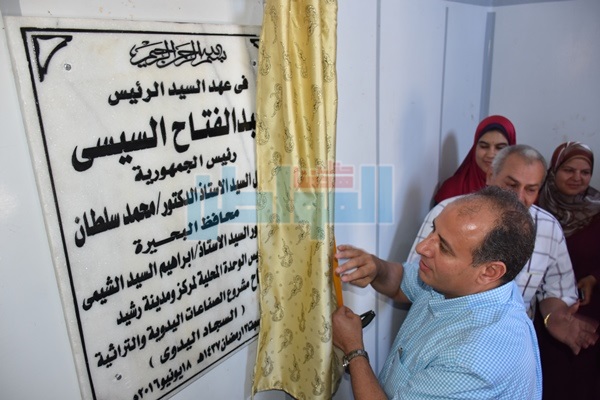 بسم الله الرحمن الرحيم
فى عهد السيد الرئيس
عبدالفتاح السيسى
رئيس الجمهورية
السيد الاستاذ الدكتور/محمد سلطان
محافظ البحيرة
السيد الاستاذ/ابراهيم السيد الشيمى
الوحدة المحلية لمركز ومدينة رشيد
مشروع الصناعات اليدوية والتراثية
(السجاد اليدوى)
١٢رمضان١٤٣٧هـ ١٨يونيو٢٠١٦م
المواطن